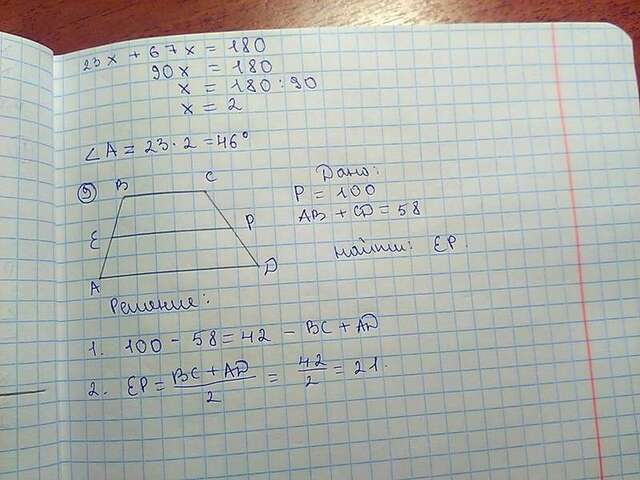 23x + 67x = 180
90x = 180
x = 180 : 90
x = 2
∠A = 23 · 2 = 46°
⑤
B
C
E
P
A
D
Дано:
P = 100
AB + CD = 58
Найти: EP.
Решение:
1. 100 - 58 = 42 - BC + AD
2. EP = (BC + AD)/2 = 42/2 = 21.